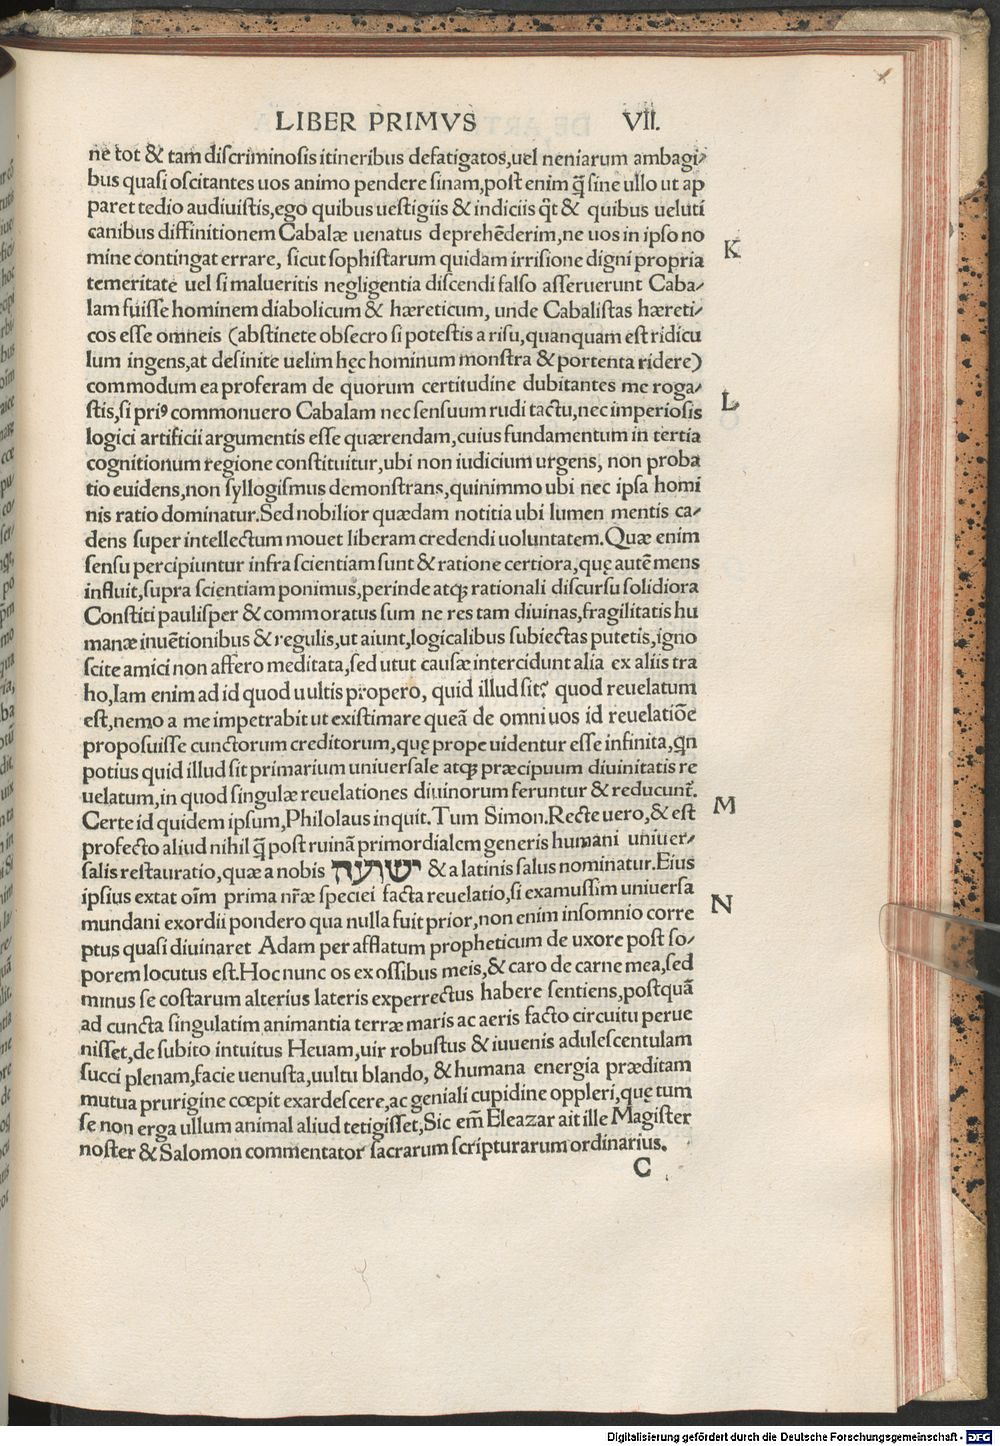 LIBER PRIMVS VII.
ne tot & tam discriminosis itineribus defatigatos,uel neniarum ambagi/
bus quasi oscitantes uos animo pendere sinam,post enim q̃ sine ullo ut ap
paret tedio audiuistis,ego quibus uestigiis & indiciis q̃t & quibus ueluti
canibus diffinitionem Cabalæ uenatus deprehẽderim,ne uos in ipso no
K
mine contingat errare, sicut sophistarum quidam irrisione digni propria
temeritate uel si malueritis negligentia discendi falso asseruerunt Caba/
lam fuisse hominem diabolicum & hæreticum, unde Cabalistas hæreti/
cos esse omneis (abstinete obsecro si potestis a risu,quanquam est ridicu
lum ingens,at desinite uelim hęc hominum monstra & portenta ridere)
commodum ea proferam de quorum certitudine dubitantes me roga/
L
stis,si priꝰ commonuero Cabalam nec sensuum rudi tactu,nec imperiosis
logici artificii argumentis esse quærendam,cuius fundamentum in tertia
cognitionum regione constituitur,ubi non iudicium urgens, non proba
tio euidens,non syllogismus demonstrans,quinimmo ubi nec ipsa homi
nis ratio dominatur.Sed nobilior quædam notitia ubi lumen mentis ca/
dens super intellectum mouet liberam credendi uoluntatem.Quæ enim
sensu percipiuntur infra scientiam sunt & ratione certiora,quę autẽ mens
influit,supra scientiam ponimus,perinde atqꝫ rationali discursu solidiora
Constiti paulisper & commoratus sum ne res tam diuinas,fragilitatis hu
manæ inuẽtionibus & regulis,ut aiunt,logicalibus subiectas putetis,igno
scite amici non affero meditata,sed utut causæ intercidunt alia ex aliis tra
ho,Iam enim ad id quod uultis propero, quid illud sit? quod reuelatum
est,nemo a me impetrabit ut existimare queã de omni uos id reuelatiõe
proposuisse cunctorum creditorum,quę prope uidentur esse infinita,q̃n
potius quid illud sit primarium uniuersale atqꝫ præcipuum diuinitatis re
uelatum,in quod singulæ reuelationes diuinorum feruntur & reducunt̃.
M
Certe id quidem ipsum,Philolaus inquit.Tum Simon.Recte uero,& est
profecto aliud nihil q̃ post ruinã primordialem generis humani uniuer/
salis restauratio,quæ a nobis ישועה & a latinis salus nominatur.Eius
ipsius extat oĩm prima nr̃æ speciei facta reuelatio,si examussim uniuersa
N
mundani exordii pondero qua nulla fuit prior,non enim insomnio corre
ptus quasi diuinaret Adam per afflatum propheticum de uxore post so/
porem locutus est.Hoc nunc os ex ossibus meis,& caro de carne mea,sed
minus se costarum alterius lateris experrectus habere sentiens,postquã
ad cuncta singulatim animantia terræ maris ac aeris facto circuitu perue
nisset,de subito intuitus Heuam,uir robustus & iuuenis adulescentulam
succi plenam,facie uenusta,uultu blando, & humana energia præditam
mutua prurigine cœpit exardescere,ac geniali cupidine oppleri,quę tum
se non erga ullum animal aliud tetigisset,Sic em̃ Eleazar ait ille Magister
noster & Salomon commentator sacrarum scripturarum ordinarius.
C
Digitalisierung gefördert durch die Deutsche Forschungsgemeinschaft - DFG